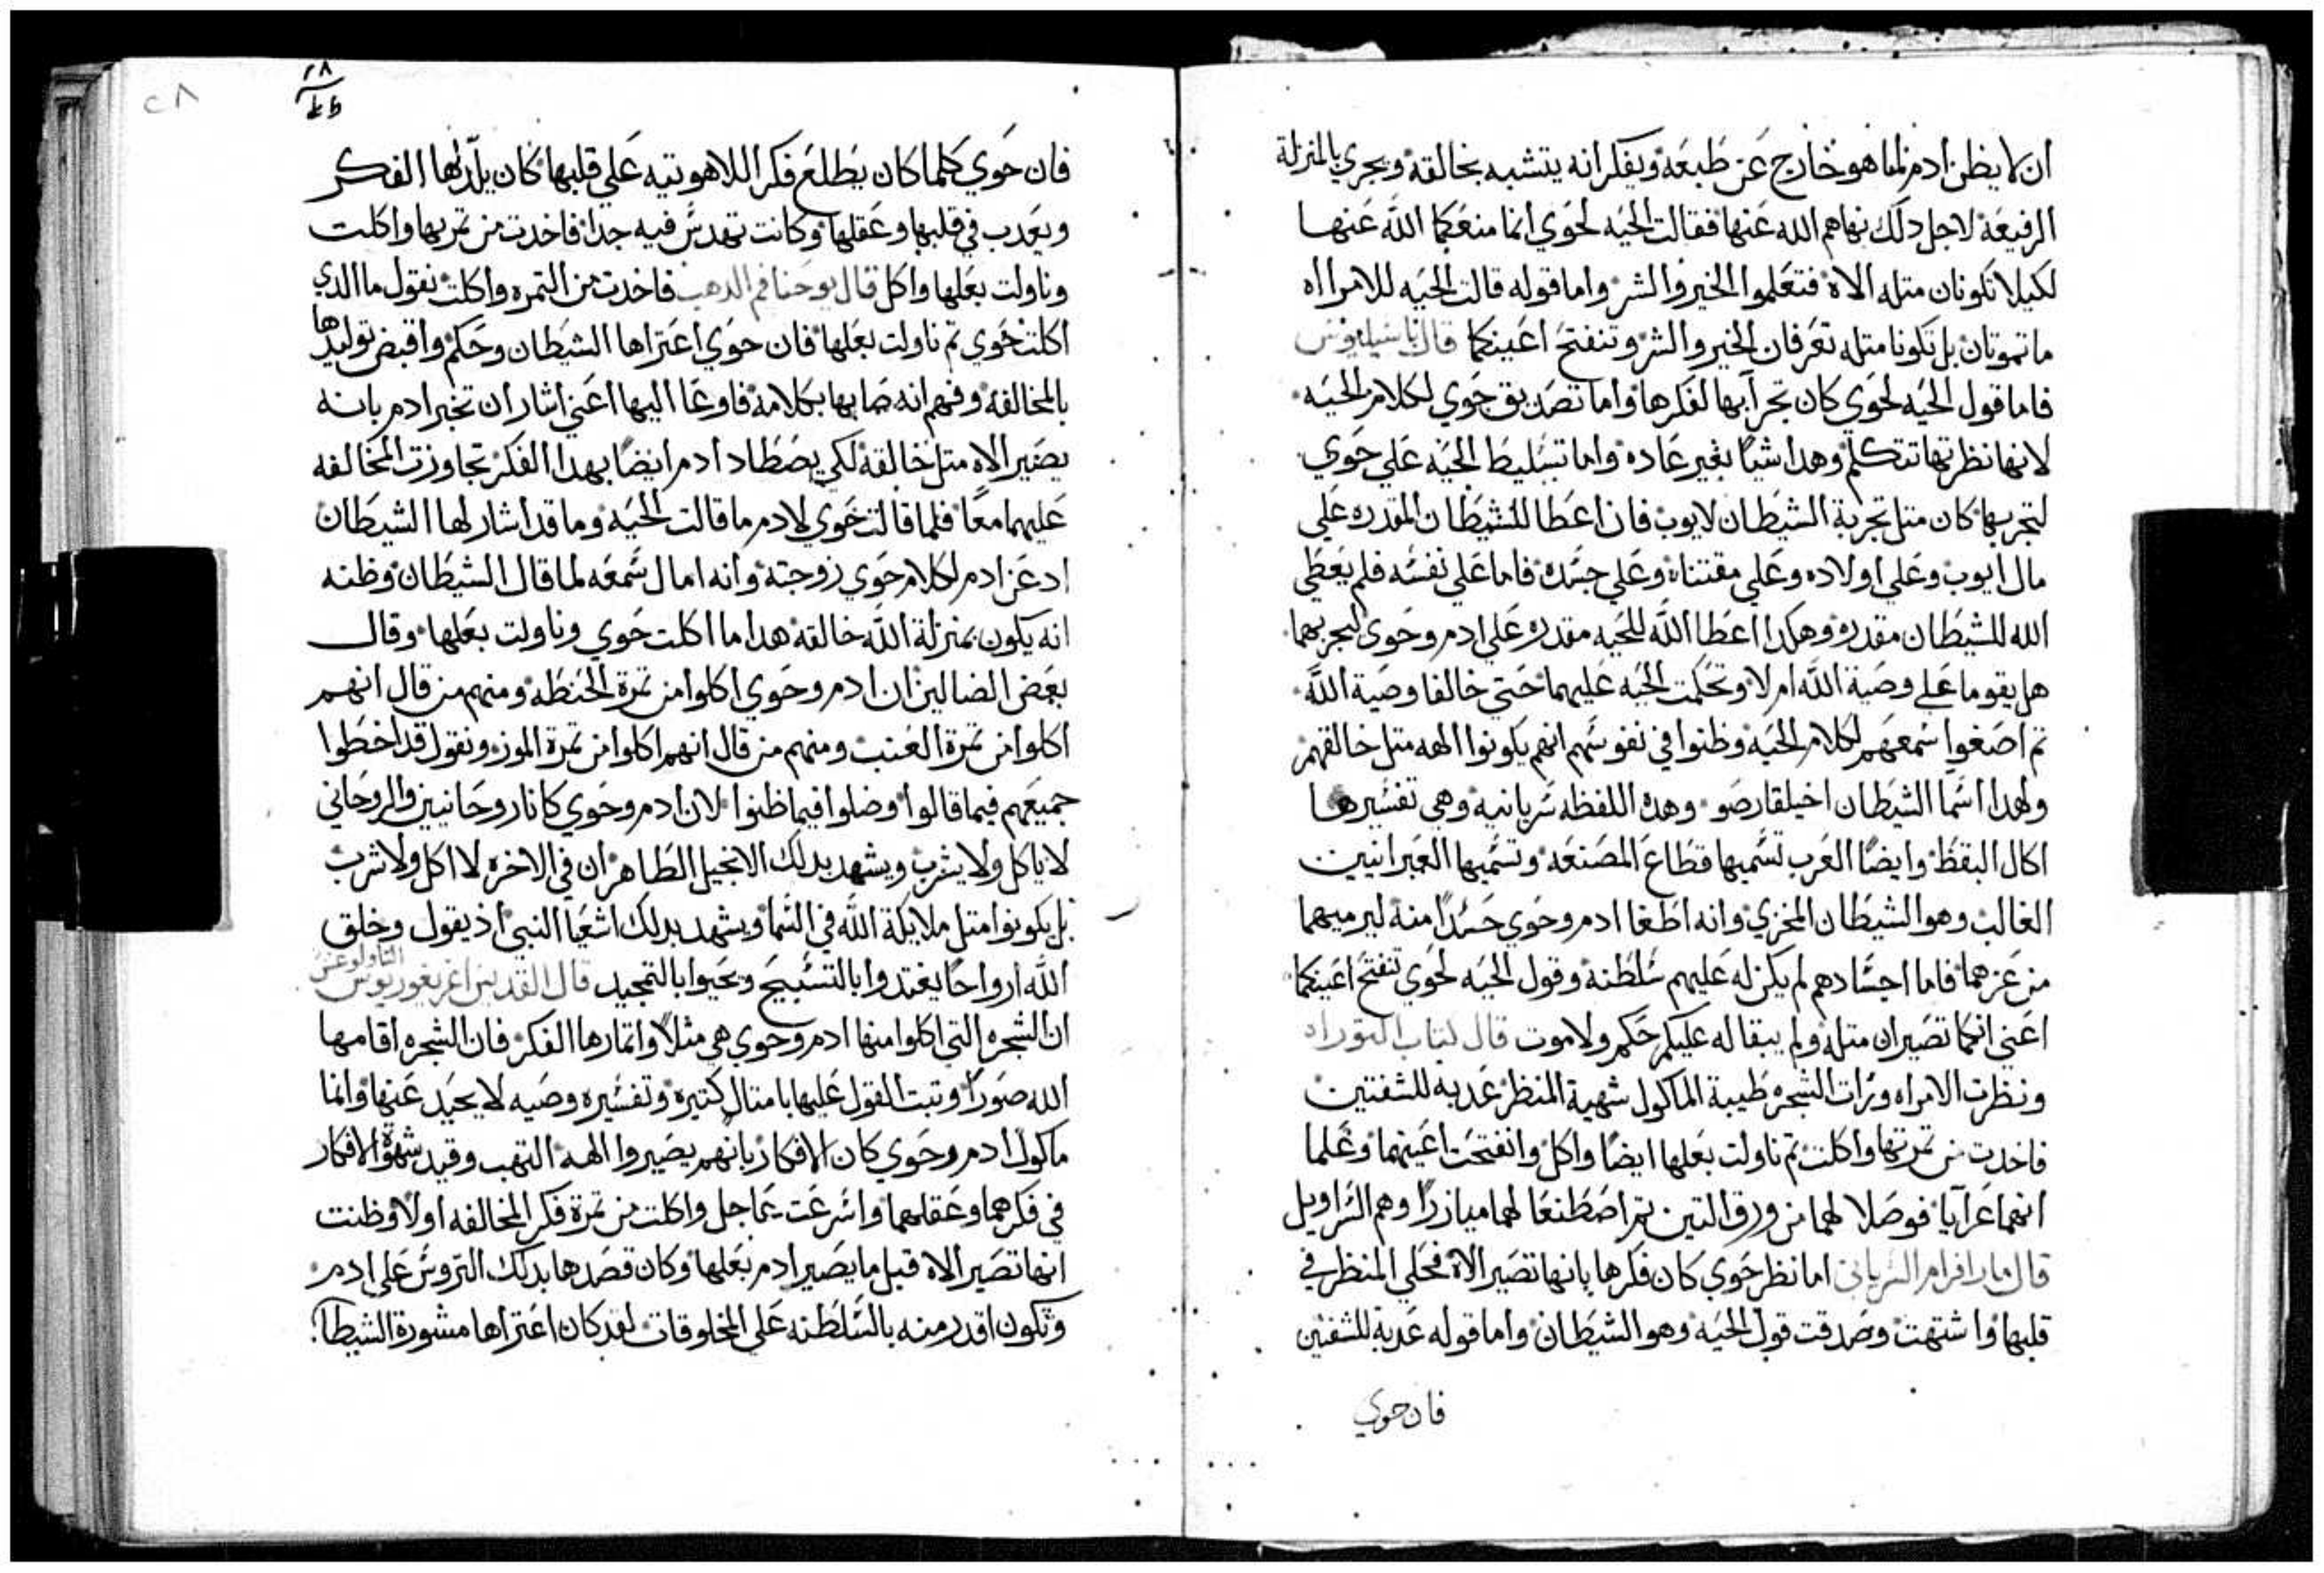 ان لا يظن ادم لما هو خارج عن طبعه ويفكر انه يتشبه بخالقه ويجري بالمنزلة
الرفيعه لاجل دلك نهاهم الله عنها فقالت الحيه لحوي انما منعكما الله عنها
لكيلا تكونان متله الاه فتعلموا الخير والشر واما قوله قالت الحيه للامراه
ما تموتان بل تكونا متله تعرفان الخير والشر وتنفتح اعينكما قال باسيليوس
فاما قول الحيه لحوي كان تجرا بها لفكرها واما تصديق حوي لكلام الحيه
لانها نظرتها تتكلم وهدا شيا بغير عاده واما تسليط الحيه علي حوي
لتجربها كان متل تجربة الشيطان لايوب فان اعطا للشيطان المقدره علي
مال ايوب وعلي اولاده وعلي مقتناه وعلي جسده فاما علي نفسه فلم يعطي
الله للشيطان مقدره وهكدا اعطا الله للحيه مقدره علي ادم وحوي ليجربهما
هل يقوما علي وصية الله ام لا وتحكمت الحيه عليهما حتي خالفا وصية الله
تم اصغوا سمعهم لكلام الحيه وظنوا في نفوسهم انهم يكونوا الهه متل خالقهم
ولهدا اسما الشيطان اخيلقارصو وهده اللفظه سريانيه وهي تفسيرها
اكال البقط وايضا العرب تسميها قطاع المصنعه وتسميها العبرانيين
الغالب وهو الشيطان المخزي وانه اطغا ادم وحوي حسدا منه ليرميهما
من عزهما فاما اجسادهم لم يكن له عليهم سلطنة وقول الحيه لحوي تنفتح اعينكما
اعني انكما تصيران متله ولم يبقا له عليكم حكم ولا موت قال كتاب التوراه
ونظرت الامراه ورات الشجره طيبة الماكول شهية المنظر عدبة للشفتين
فاخدت من تمرتها واكلت تم ناولت بعلها ايضا واكل وانفتحت اعينهما وعلما
انهما عرايا فوصلا لهما من ورق التين تم اصطنعا لهما ميازرا وهم السراويل
قال مار افرام السرياني اما نظر حوي كان فكرها بانها تصير الاه فحلي المنظر في
قلبها واشتهت وصدقت قول الحيه وهو الشيطان واما قوله عدبة للشفتين
فان حوي
٢٨
فان حوي كلما كان يطلع فكر اللاهوتيه علي قلبها كان يلدلها الفكر
ويعدب في قلبها وعقلها وكانت تهدس فيه جدا فاخدت من تمرتها واكلت
وناولت بعلها واكل قال يوحنا فم الدهب فاخدت من التمره واكلت نقول ما الدي
اكلت حوي تم ناولت بعلها فان حوي اعتراها الشيطان وحكم واقبض توليدها
بالمخالفه وفهم انه صابها بكلامه فاوعا اليها اعني اشار ان تخبر ادم بانه
يصير الاه متل خالقه لكي يصطاد ادم ايضا بهدا الفكر تجاوزت المخالفه
عليهما معا فلما قالت حوي لادم ما قالت الحيه وما قد اشار لها الشيطان
ادعن ادم لكلام حوي زوجته وانه امال سمعه لما قال الشيطان وظنه
انه يكون بمنزلة الله خالقه هدا ما اكلت حوي وناولت بعلها وقال
بعض الضالين ان ادم وحوي اكلوا من تمرة الحنطه ومنهم من قال انهم
اكلوا من تمرة العنب ومنهم من قال انهم اكلوا من تمرة الموز ونقول قد اخطوا
جميعهم فيما قالوا وضلوا فيما ظنوا لان ادم وحوي كانا روحانيين والروحاني
لا ياكل ولا يشرب ويشهد بدلك الانجيل الطاهر ان في الاخره لا اكل ولا شرب
بل يكونوا متل ملايكة الله في السما ويشهد بدلك اشعيا النبي اذ يقول وخلق
الله ارواحا يغتدوا بالتسبيح ويحيوا بالتمجيد قال القديس اغريغوريوس التاولوغس
ان الشجره التي اكلوا منها ادم وحوي هي مثلا واتمارها الفكر فان الشجره اقامها
الله صورا وتبت القول عليها بامتال كتيره وتفسيره وصيه لا يحيد عنها وانما
ماكول ادم وحوي كان الافكار بانهم يصيروا الهه التهب وقيد شهوة الافكار
في فكرهما وعقلهما واسرعت بما جل واكلت من تمرة فكر المخالفه اولا وظنت
انها تصير الاه قبل ما يصير ادم بعلها وكان قصدها بدلك التروس علي ادم
وتكون اقدر منه بالسلطنه علي المخلوقات لقد كان اعتراها مشورة الشيطان